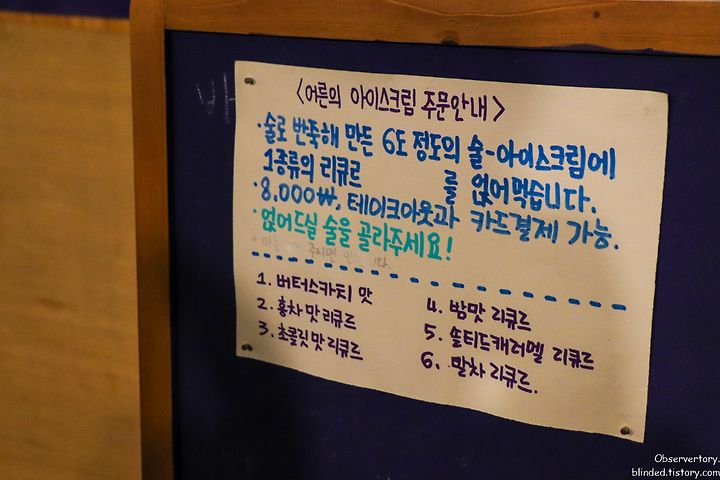 <어른의 아이스크림 주문안내>
·술로 반죽해 만든 6도 정도의 술-아이스크림에
1종류의 리큐르 를 얹어먹습니다.
·8,000₩, 테이크아웃과 카드결제 가능.
·얹어드실 술을 골라주세요!
주시면
1. 버터스카치 맛
2. 홍차 맛 리큐르
3. 초콜릿 맛 리큐르
4. 밤맛 리큐르
5. 솔티드캐러멜 리큐르
6. 말차 리큐르.
Observertory.
blinded.tistory.com